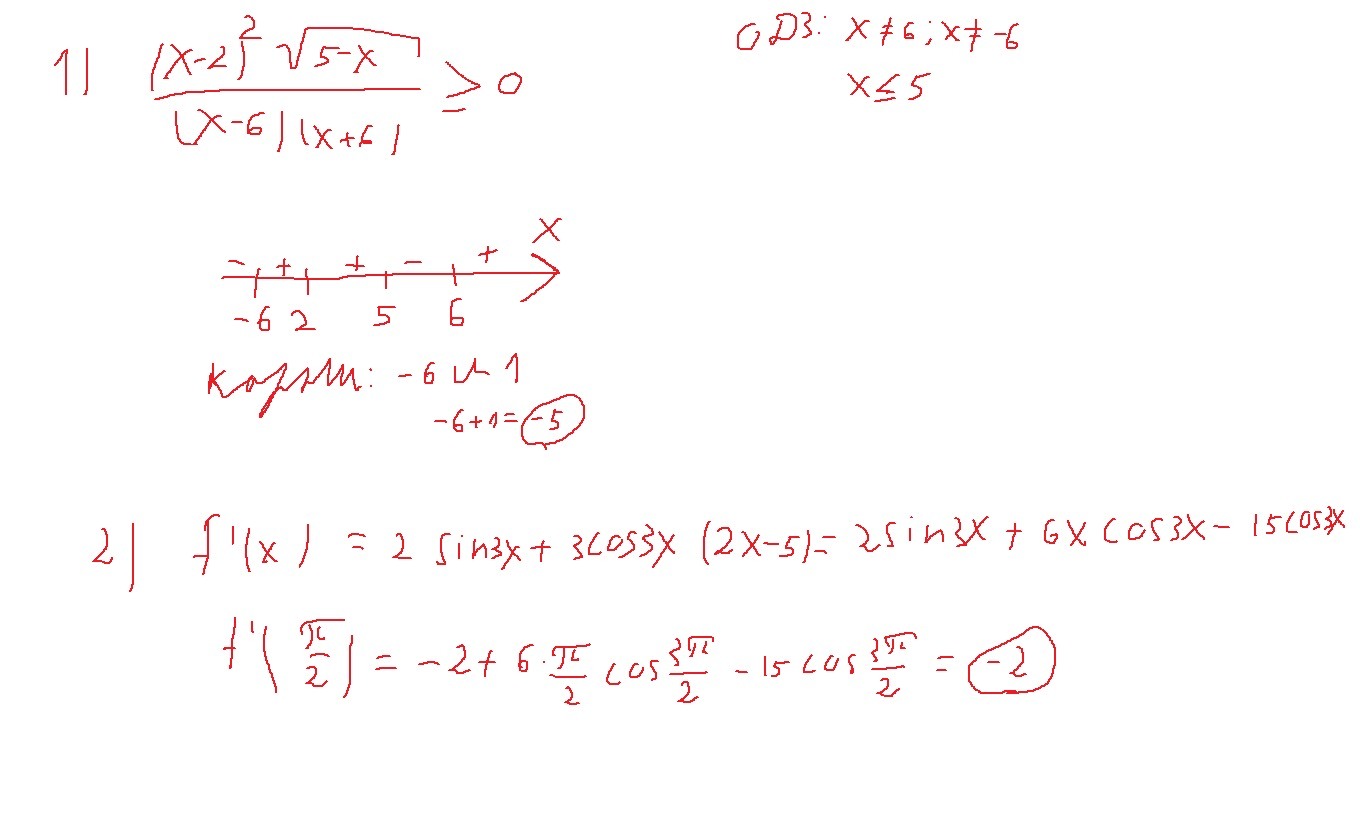 1) (x-2)² √(5-x) / (x-6)(x+6) ≥ 0
ОДЗ: x ≠ 6; x ≠ -6
x ≤ 5
- + + - + x
-6 2 5 6
корни: -6 и 1
-6+1=-5
2) f'(x) = 2 sin3x + 3cos3x (2x-5) = 2sin3x + 6x cos3x - 15cos3x
f'(π/2) = -2 + 6·π/2 cos 3π/2 - 15 cos 3π/2 = -2